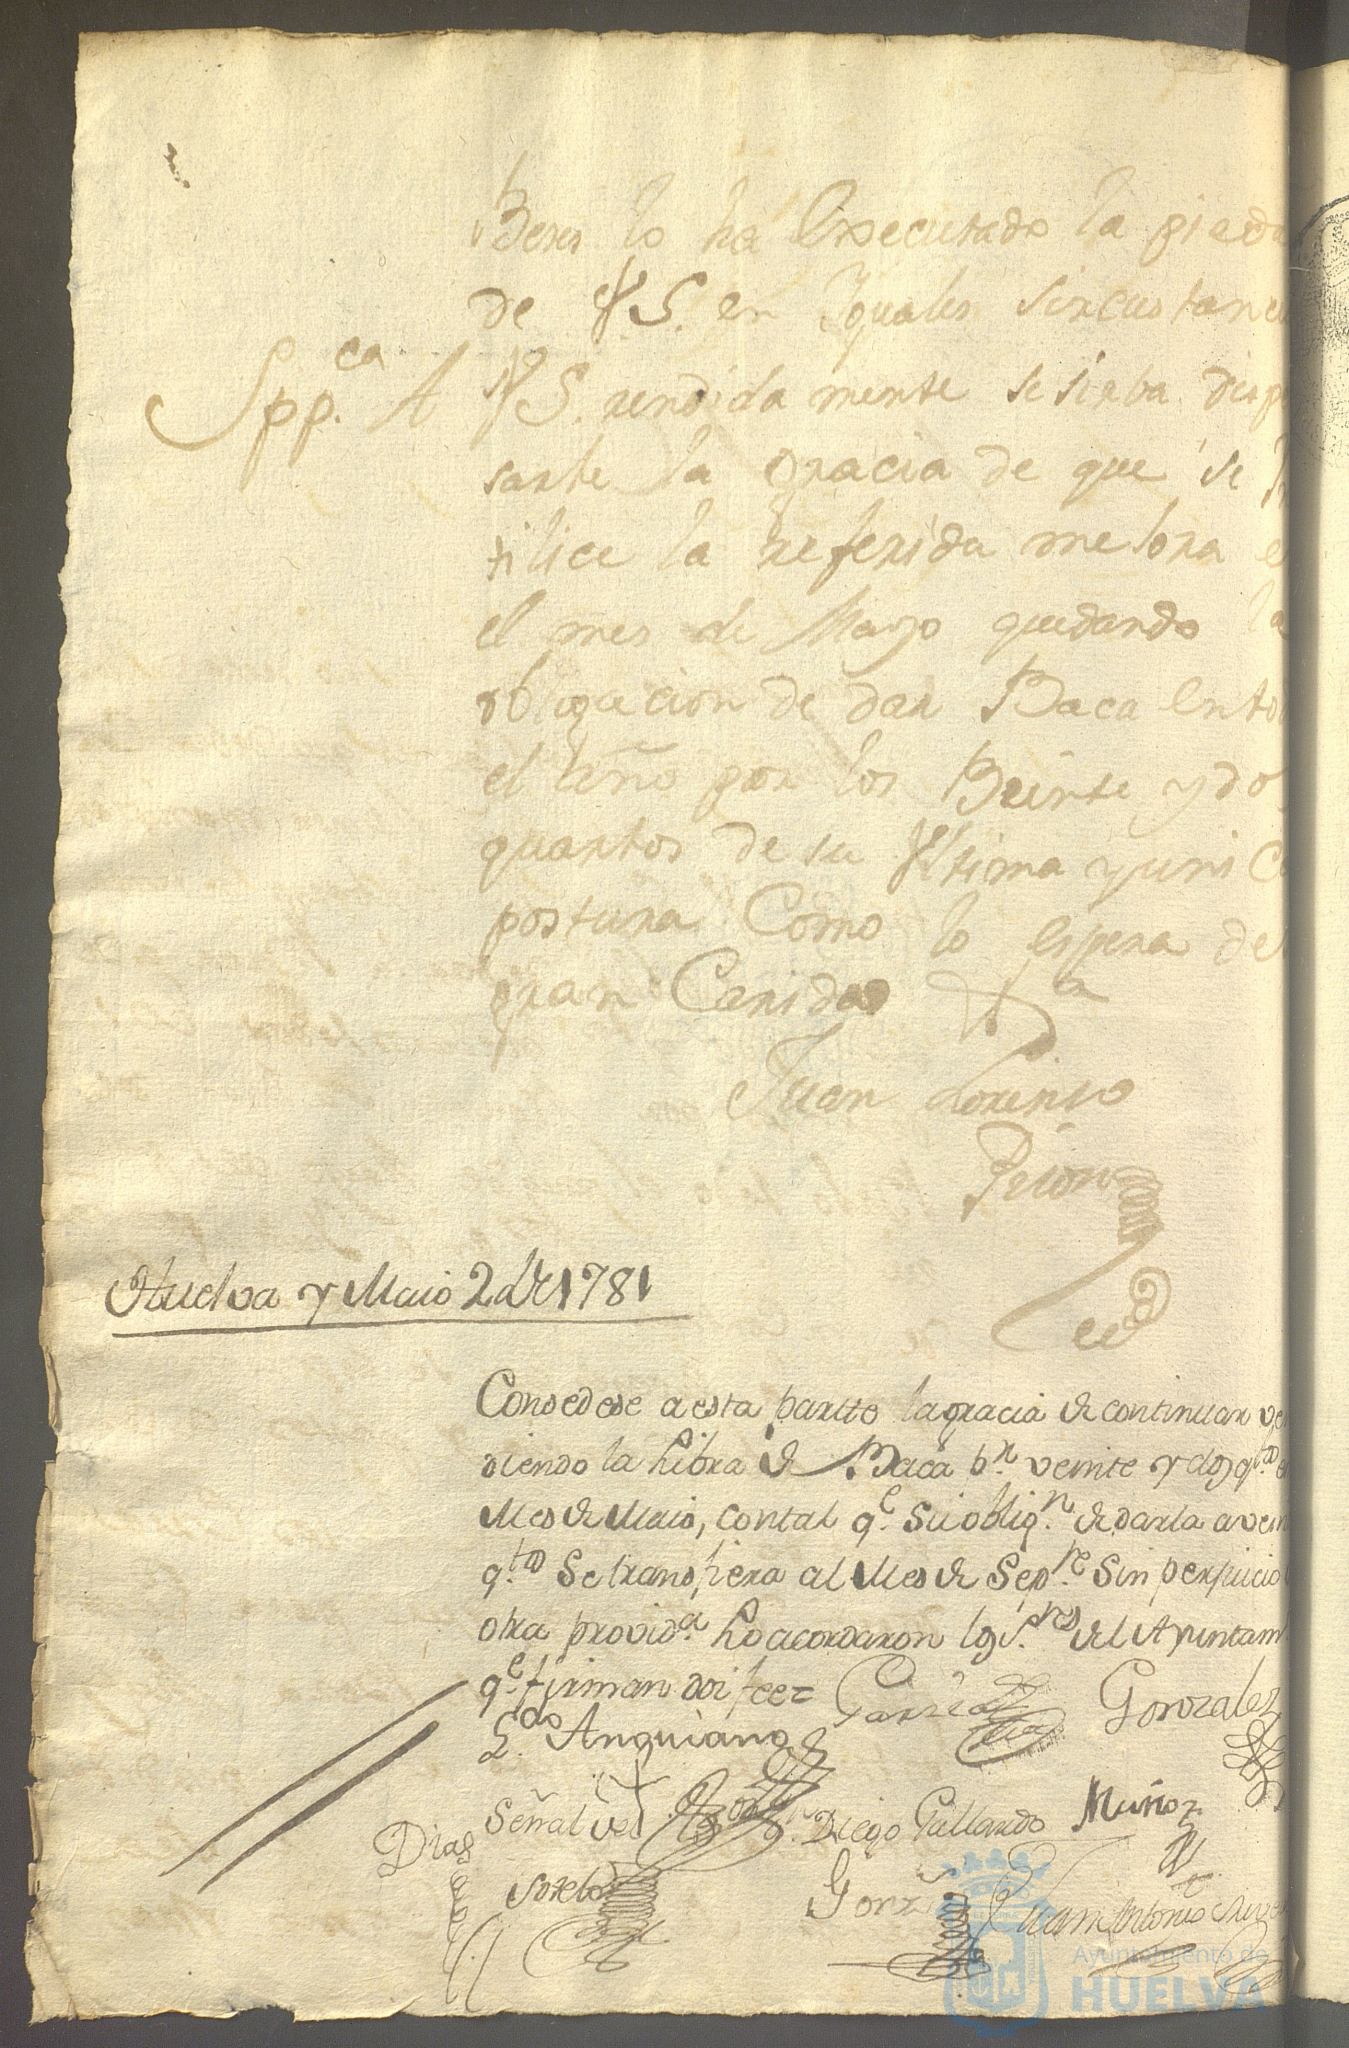 Beses lo ha Executado la pieda
de VS. en Yguales sircustanci
Spp.ca A VS. rendida mente se sirba disp
sarle la gracia de que se
tilice la referida melora e
el mes de Mayo quedando la
obligacion de dar Baca en to
el año por los Beinte y do
quartos de su Ultima y uni C
postura Como lo espera de
gran Caridad
Juan Lorenso
Prion
Huelva y Maio 2 de 1781
Consedese a esta partte la gracia de continuar ve
diendo la Libra de Baca p.r veinte y dos q.tos e
Mes de Maio, con tal q.e su oblig.n de darla a vein
q.tos Se transfiera al Mes de Sep.re Sin perjuicio
otra provid.a Lo acordaron los S.res del Ayuntam
q.e firman doi fee=
Garzia Gonzalez
L.do Anguiano
Señal del
Diego Gallardo Muñoz
Dias
Sotelo
Gonz
Juan Antonio
Ayuntamiento de
HUELVA